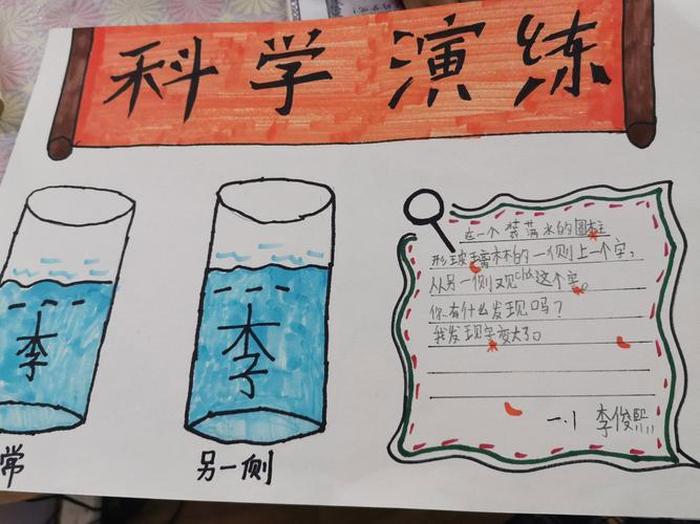 科学演练
李
李
常
另一侧
在一个装满水的圆柱
形玻璃杯的一侧上一个字，
从另一侧又见chá这个字。
你有什么发现吗？
我发现字变大了。
一.1 李俊熙